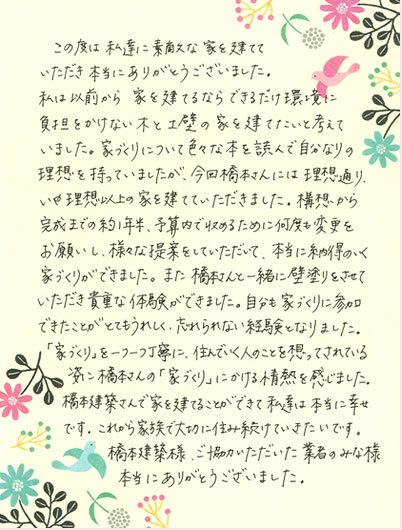 この度は私達に素敵な家を建てて
いただき本当にありがとうございました。
私は以前から家を建てるならできるだけ環境に
負担をかけない木と土壁の家を建てたいと考えて
いました。家づくりについて色々な本を読んで自分なりの
理想を持っていましたが、今回橋本さんには理想通り、
いや理想以上の家を建てていただきました。構想から
完成までの約1年半、予算内で収めるために何度も変更を
お願いし、様々な提案をしていただいて、本当に納得のいく
家づくりができました。また橋本さんと一緒に壁塗りをさせて
いただき貴重な体験ができました。自分も家づくりに参加
できたことがとてもうれしく、忘れられない経験となりました。
「家づくり」を一つ一つ丁寧に、住んでいく人のことを想ってされている
姿に橋本さんの「家づくり」にかける情熱を感じました。
橋本建築さんで家を建てることができて私達は本当に幸せ
です。これから家族で大切に住み続けていきたいです。
橋本建築様、ご協力いただいた業者のみな様
本当にありがとうございました。